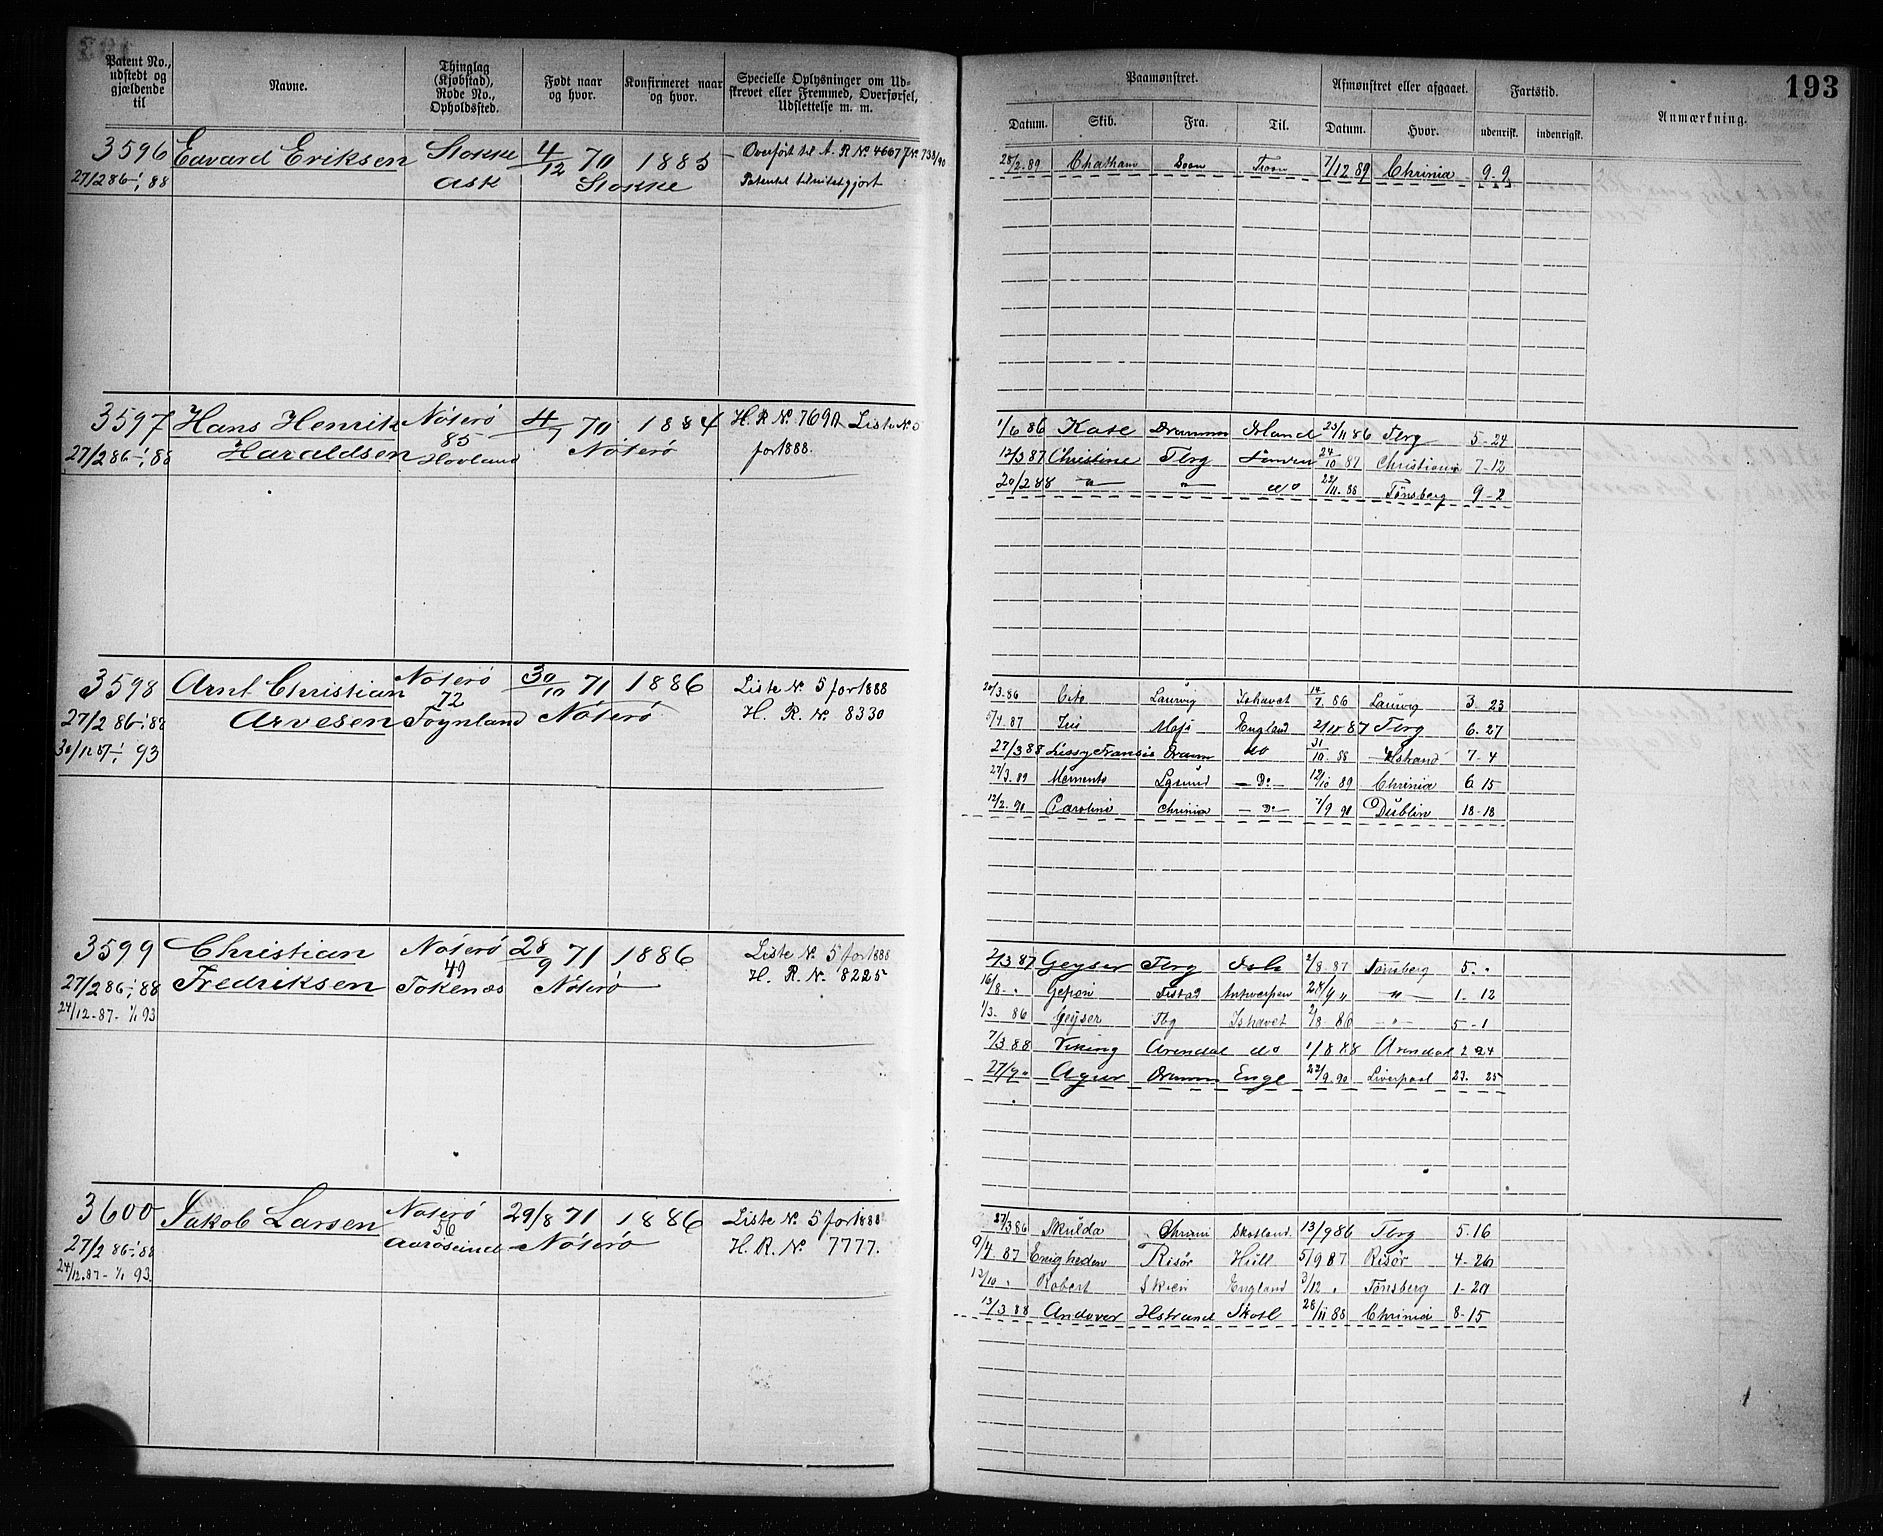 193
Patent No., udstedt og gjældende til
Navne.
Thinglag (Kjøbstad), Rode No., Opholdssted.
Født naar og hvor.
Konfirmeret naar og hvor.
Specielle Oplysninger om Udskrevet eller Fremmed, Overførsel, Udslettelse m. m.
Paamønstret.
Afmønstret eller afgaaet.
Fartstid.
Anmærkning.
Datum. Skib. Fra. Til. Datum. Hvor. udenrisk. indenrigsk.
3596 Edvard Eriksen Stokke 4/12 70 1885 Overført til A. R No 4667
27/2 86 - 1/1 88 Ask Stokke Patentet
28/2. 89 Chatham 7/12 89 Chrinia 9-9
3597 Hans Henrik Nøterø 4/7 70 1884 H. R. No. 769 Liste No
27/2 86 - 1/1 88 Haraldsen 85 Hovland Nøterø for 1888.
1/6 86 Kate Dramm Island 23/11 86 Tbrg 5-24
12/3 87 Christine Tbrg 24/10 87 Christiania 7-12
20/2 88 — " — — " — do 22/11. 88 Tønsberg 9-2
3598 Arnt Christian Nøterø 30/10 71 1886 Liste No. 5 for 1888
27/2 86 - 1/1 88 Arvesen 72 Tognland Nøterø H. R. No. 8330
30/12 87 - 1/1 93
20/3. 86 Cito Laurvig Ishavet 14/7 86 Laurvig 3. 23
87 Iris England 2/10 87 Tbrg 6. 27
27/3 88 Lissy Francis Dramm do 31/10 88 Hstrand 7-4
27/3. 89 Memento — Do — 12/10 89 Chrinia 6. 15
12/2. 90 Caroline Chrinia — Do — 7/9 90 Dublin 18-18
3599 Christian Nøterø 28/9 71 1886 Liste No. 5 for 1888
27/2 86 - 1/1 88 Fredriksen 49 Tokenæs Nøterø H. R. No. 8225
24/12-87- 1/1 93
2/3 87 Geyser Tbrg Ish 2/8 87 Tønsberg 5. "
16/8 - " Antwerpen 24/9 " — " — 1. 12
1/3. 86 Geyser Tbg Ishavet 2/8 86 — " — 5-1
7/3 88 Viking Arendal do 1/8 88 Arendal 2 24
27/9 " Agur Dramm Engl 22/9. 90 Liverpool 23. 25
3600 Jakob Larsen Nøterø 29/8 71 1886 Liste No. 5 for 1888
27/2 86 - 1/1 88 56 Aarøsund Nøterø H. R. No 7777.
24/12. 87 - 1/1 93.
27/3 86 Skulda Chrini Skotland 13/9 86 Tbrg 5. 16
9/4. 87 Enigheden Risør Hull 5/9 87 Risør 4-26
12/10 " Robert Skien England 3/12 " Tønsberg 1-29
13/3 88 Andover Hstrand Skotl 28/11 88 Chrinia 8-15